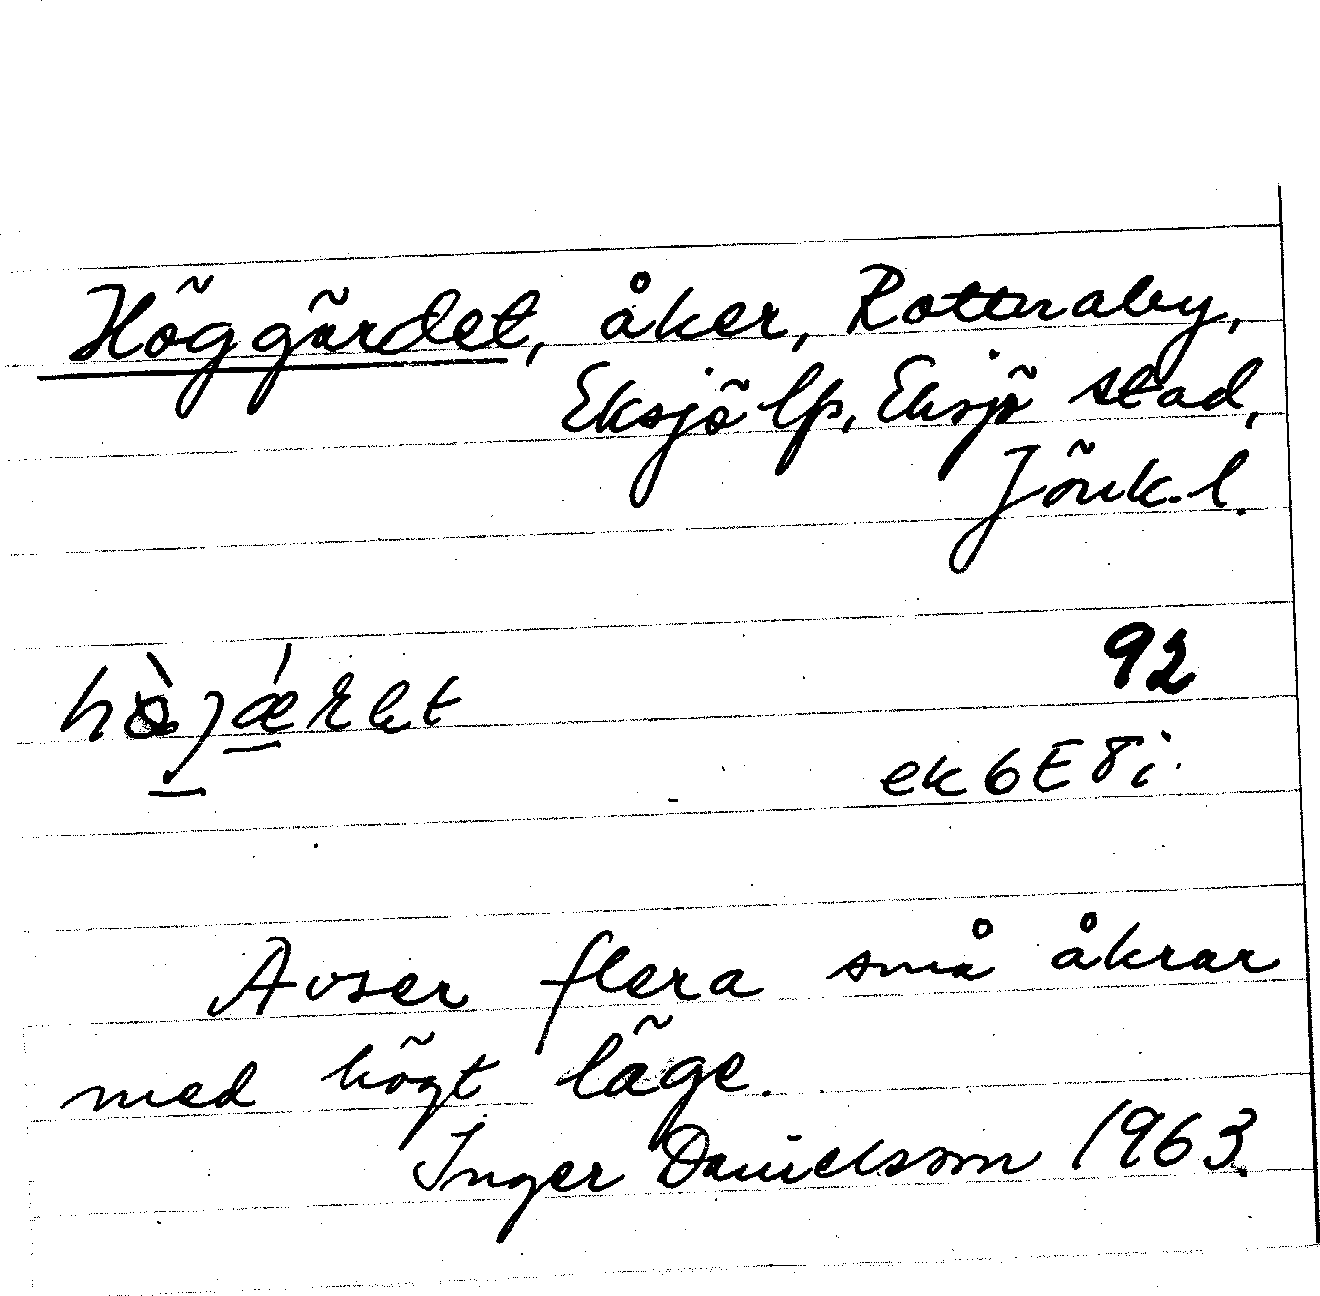 Höggärdet, åker, Rottnaby,
Eksjö lfs, Eksjö stad,
Jönk. l.
92
ek 6E8i
Avser flera små åkrar
med högt läge.
Inger Danielsson 1963